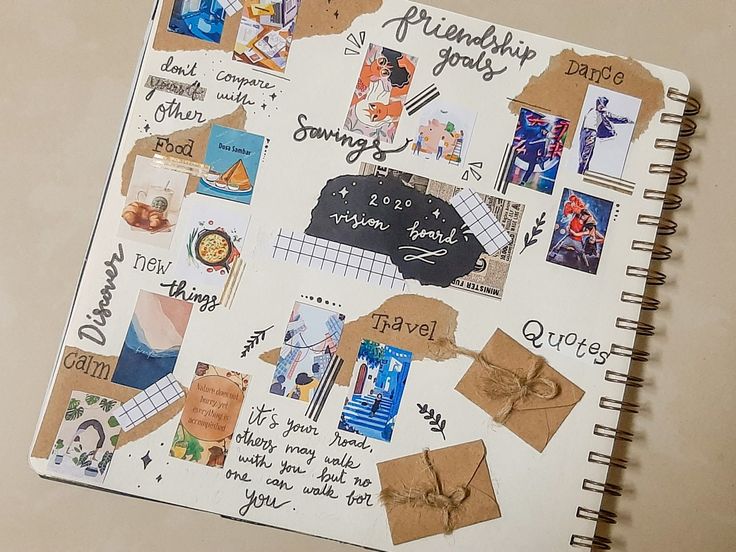 friendship
goals
Dance
don't compare
yourself with
other
Savings
Food
Dosa Sambar
2020
vision board
MINISTER FU
Discover
new
things
Travel
Quotes
Calm
Nature does not
hurry, yet
everything is
accomplished
it's your road,
others may walk
with you but no
one can walk bor
you.